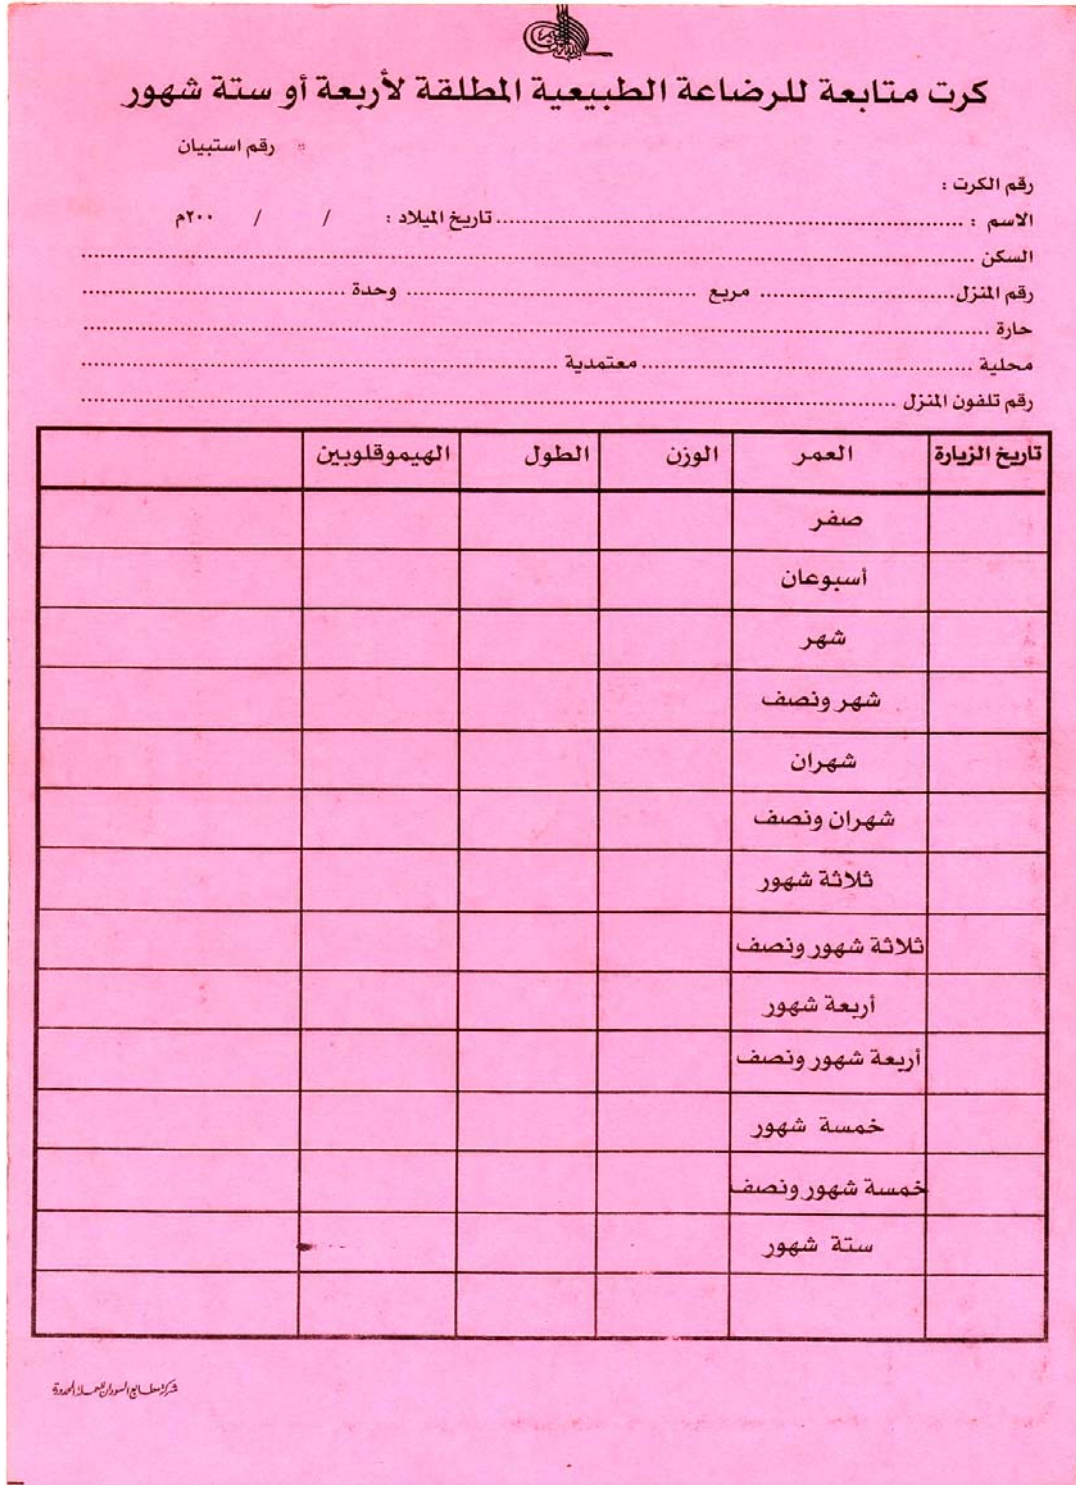 كرت متابعة للرضاعة الطبيعية المطلقة لأربعة أو ستة شهور
رقم استبيان
رقم الكرت :
الاسم : ........................ تاريخ الميلاد : / / ٢٠٠م
السكن ........................
رقم المنزل........................ مربع ........................ وحدة ........................
حارة ........................
محلية ........................ معتمدية ........................
رقم تلفون المنزل ........................
تاريخ الزيارة العمر الوزن الطول الهيموقلوبين
صفر
أسبوعان
شهر
شهر ونصف
شهران
شهران ونصف
ثلاثة شهور
ثلاثة شهور ونصف
أربعة شهور
أربعة شهور ونصف
خمسة شهور
خمسة شهور ونصف
ستة شهور
شركة مطابع السودان للعملة المحدودة